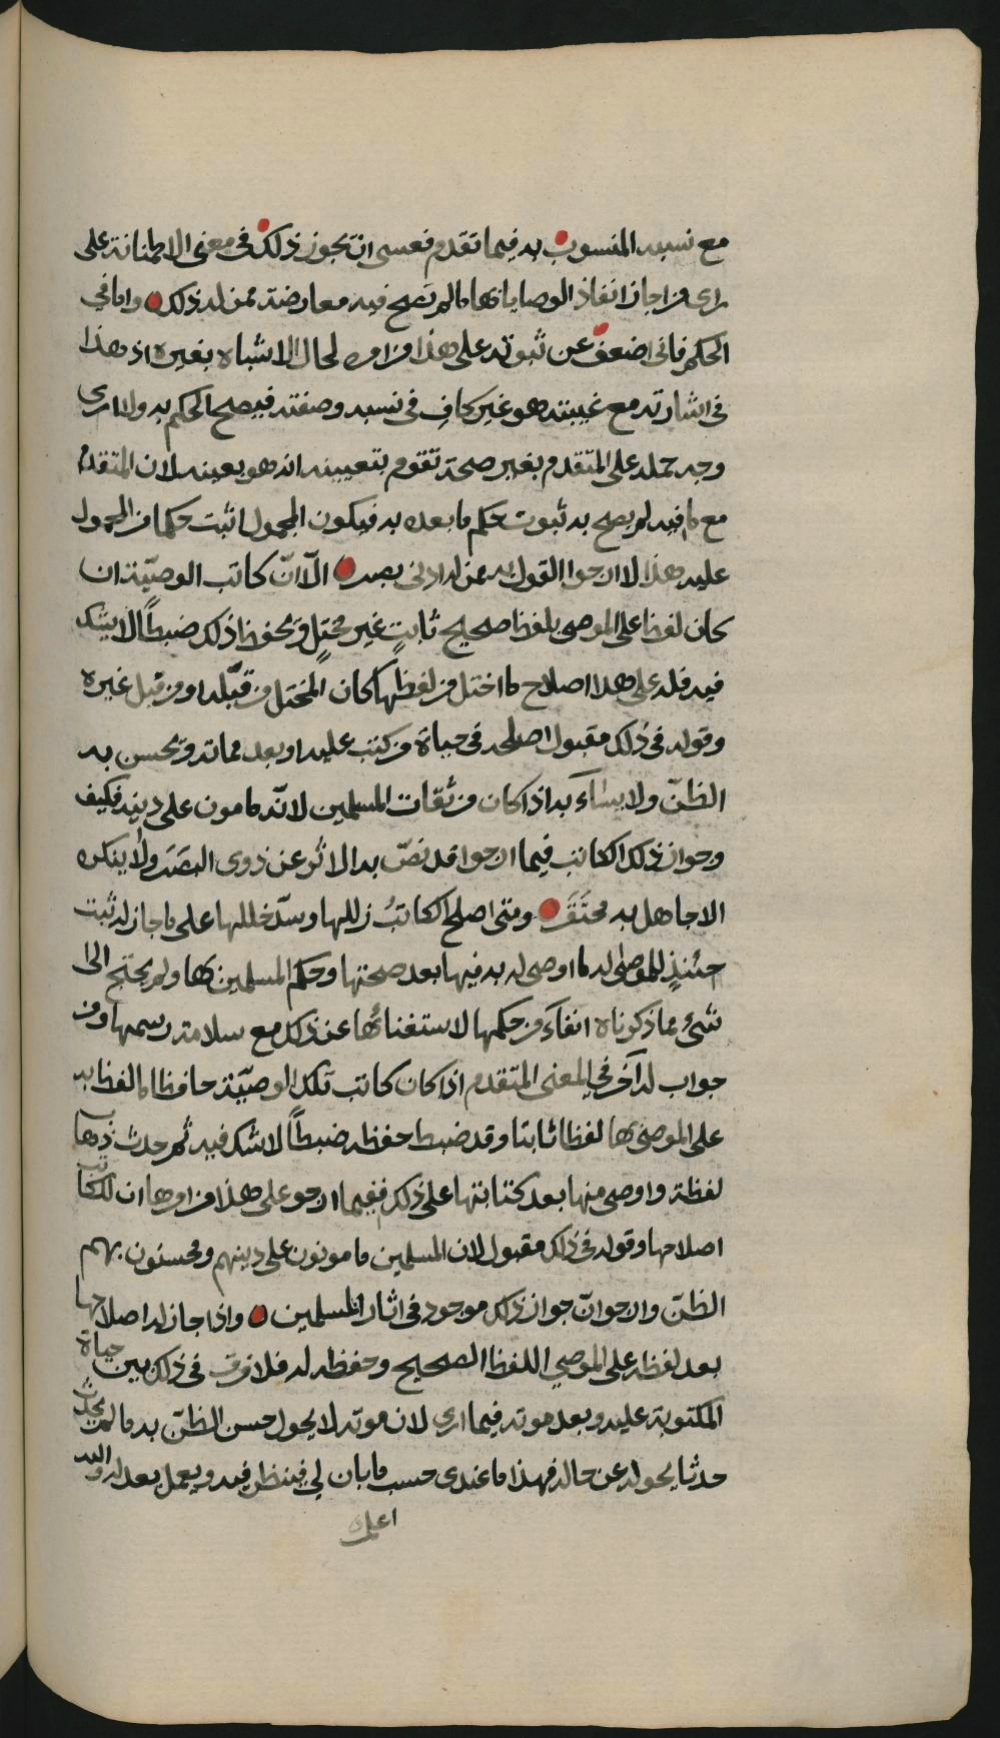 مع نسبه المنسوب به فيما تقدم فعسى ان يجوز ذلك في معنى الاطمئنانة على
راى من اجاز انفاذ الوصايا بها ما لم تصح فيه معارضة ممن له ذلك واما في
الحكم فاني اضعف عن ثبوته على هذا من امره لحال الاشباه بغيره اذ هذا
في اشارته مع غيبته هو غير كاف في نسبه وصفته فيصح الحكم به ولا ارى
وجه حمله على المتقدم بغير صحة تقوم بتعيينه انه هو بعينه لان المتقدم
مع ما فيه لم يصح به ثبوت حكم ما بعده به فيكون المحمول اثبت حكما من المحمول
عليه هذا لا ارجو القول به عن له ادنى بصر الّا انّ كاتب الوصيّة ان
كان لفظ على الموصي بلفظ صحيح ثابتٍ غير مختلٍ ويحفظ ذلك ضبطاً لا يشك
فيه فله على هذا اصلاح ما اختل من لفظها كان المختل من قبله او من قبل غيره
وقوله في ذلك مقبول اصلحه في حياة من كتب عليه او بعد مماته ويحسن به
الظنّ ولا يساء به اذا كان من ثقات المسلمين لانّه مامون على دينه فكيف
وجواز ذلك الكاتب فيما ارجو قد نصّ به الاثر عن ذوى البصر ولا ينكره
الا جاهل به محتقر ومتى اصلح الكاتبُ زللها وسدّ خللها على ما جاز له ثبت
حينئذٍ للموصى له ما اوصى له به فيها بعد صحتها وحكم المسلمين بها ولم يحتج الى
شئ مما ذكرناه انفاً من حكمها لاستغنائها عن ذلك مع سلامة رسمها ومن
جواب له آخر في المعنى المتقدم اذا كان كاتب تلك الوصيّة حافظا ما لفظ به
على الموصي بها لفظا ثابتا وقد ضبط حفظه ضبطاً لا شك فيه ثم حدث ذهاب
لفظة واوصى منها بعد كتابتها على ذلك ففيما ارجو على هذا من امرها ان للكاتب
اصلاحها وقوله في ذلك مقبول لان المسلمين مامونون على دينهم ومحسنون بهم
الظنّ وارجو انّ جواز ذلك موجود في اثار المسلمين واذا جاز له اصلاحها
بعد لفظه على الموصي اللفظ الصحيح وحفظه له فلا فرق في ذلك بين حياة
المكتوبة عليه وبعد موته فيما ارى لان موته لا يحول حسن الظنّ به ما لم يحدث
حدثا يحوله عن حاله فهذا ما عندى حسب ما بان لي فينظر فيه ويعمل بعدله والله
اعلم